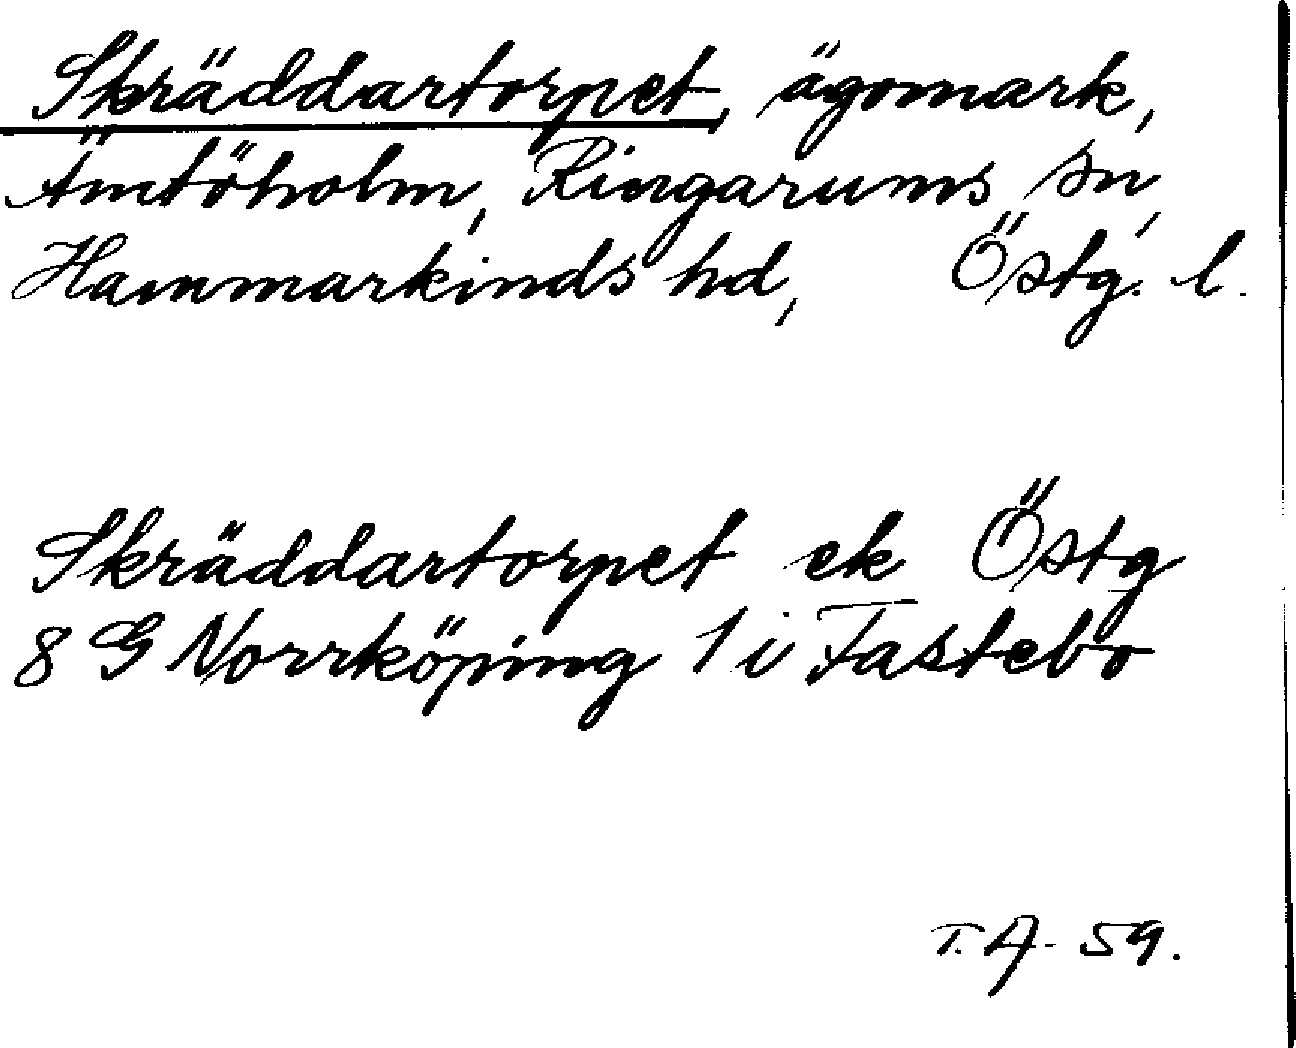 Skräddartorpet, ägomark,
Ämtöholm, Ringarums sn,
Hammarkinds hd, Östg. l.
Skräddartorpet ek Östg
8 G Norrköping 1 i Fastebo
T. A. 59.